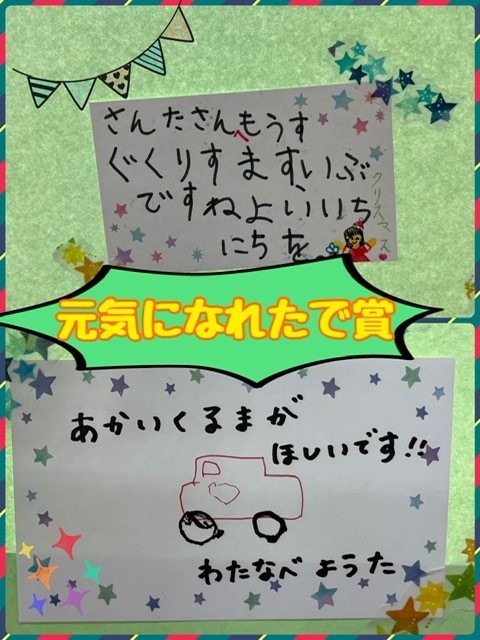 さんたさんへもうす
ぐくりすますいぶ
ですねよいいち
にちを
クリスマス
元気になれたで賞
あかいくるまが
ほしいです!!
わたなべ ようた